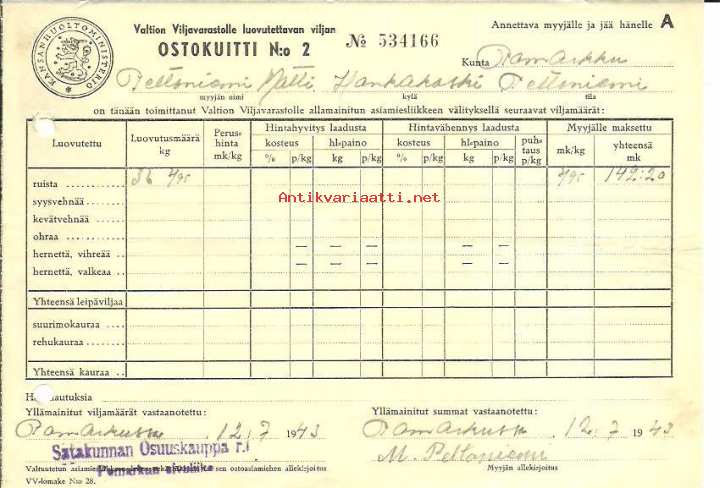 Valtion Viljavarastolle luovutettavan viljan
OSTOKUITTI N:o 2
№ 534166
Annettava myyjälle ja jää hänelle A
KANSANHUOLTOMINISTERIÖ
Kunta Pomarkku
Peltoniemi Matti, Honkakoski Peltoniemi
myyjän nimi kylä tila
on tänään toimittanut Valtion Viljavarastolle allamainitun asiamiesliikkeen välityksellä seuraavat viljamäärät:
Luovutettu Luovutusmäärä kg Perus-hinta mk/kg Hintahyvitys laadusta Hintavähennys laadusta Myyjälle maksettu
kosteus hl-paino kosteus hl-paino puh-taus p/kg mk/kg yhteensä mk
% p/kg kg p/kg % p/kg kg p/kg
ruista 36 3/95 3/95 142:20
syysvehnää
kevätvehnää
ohraa
hernettä, vihreää — — — —
hernettä, valkeaa — — — —
Yhteensä leipäviljaa
suurimokauraa
rehukauraa
Yhteensä kauraa
Antikvariaatti.net
Yllämainitut viljamäärät vastaanotettu: Yllämainitut summat vastaanotettu:
Pomarkussa 12/7 1943 Pomarkussa 12/7 1943
Satakunnan Osuuskauppa r.l
Pomarkun sivuliike
M. Peltoniemi
Valtuutetun asiamiesliikkeen sen ostoasiamiehen allekirjoitus Myyjän allekirjoitus
VV-lomake N:o 28.